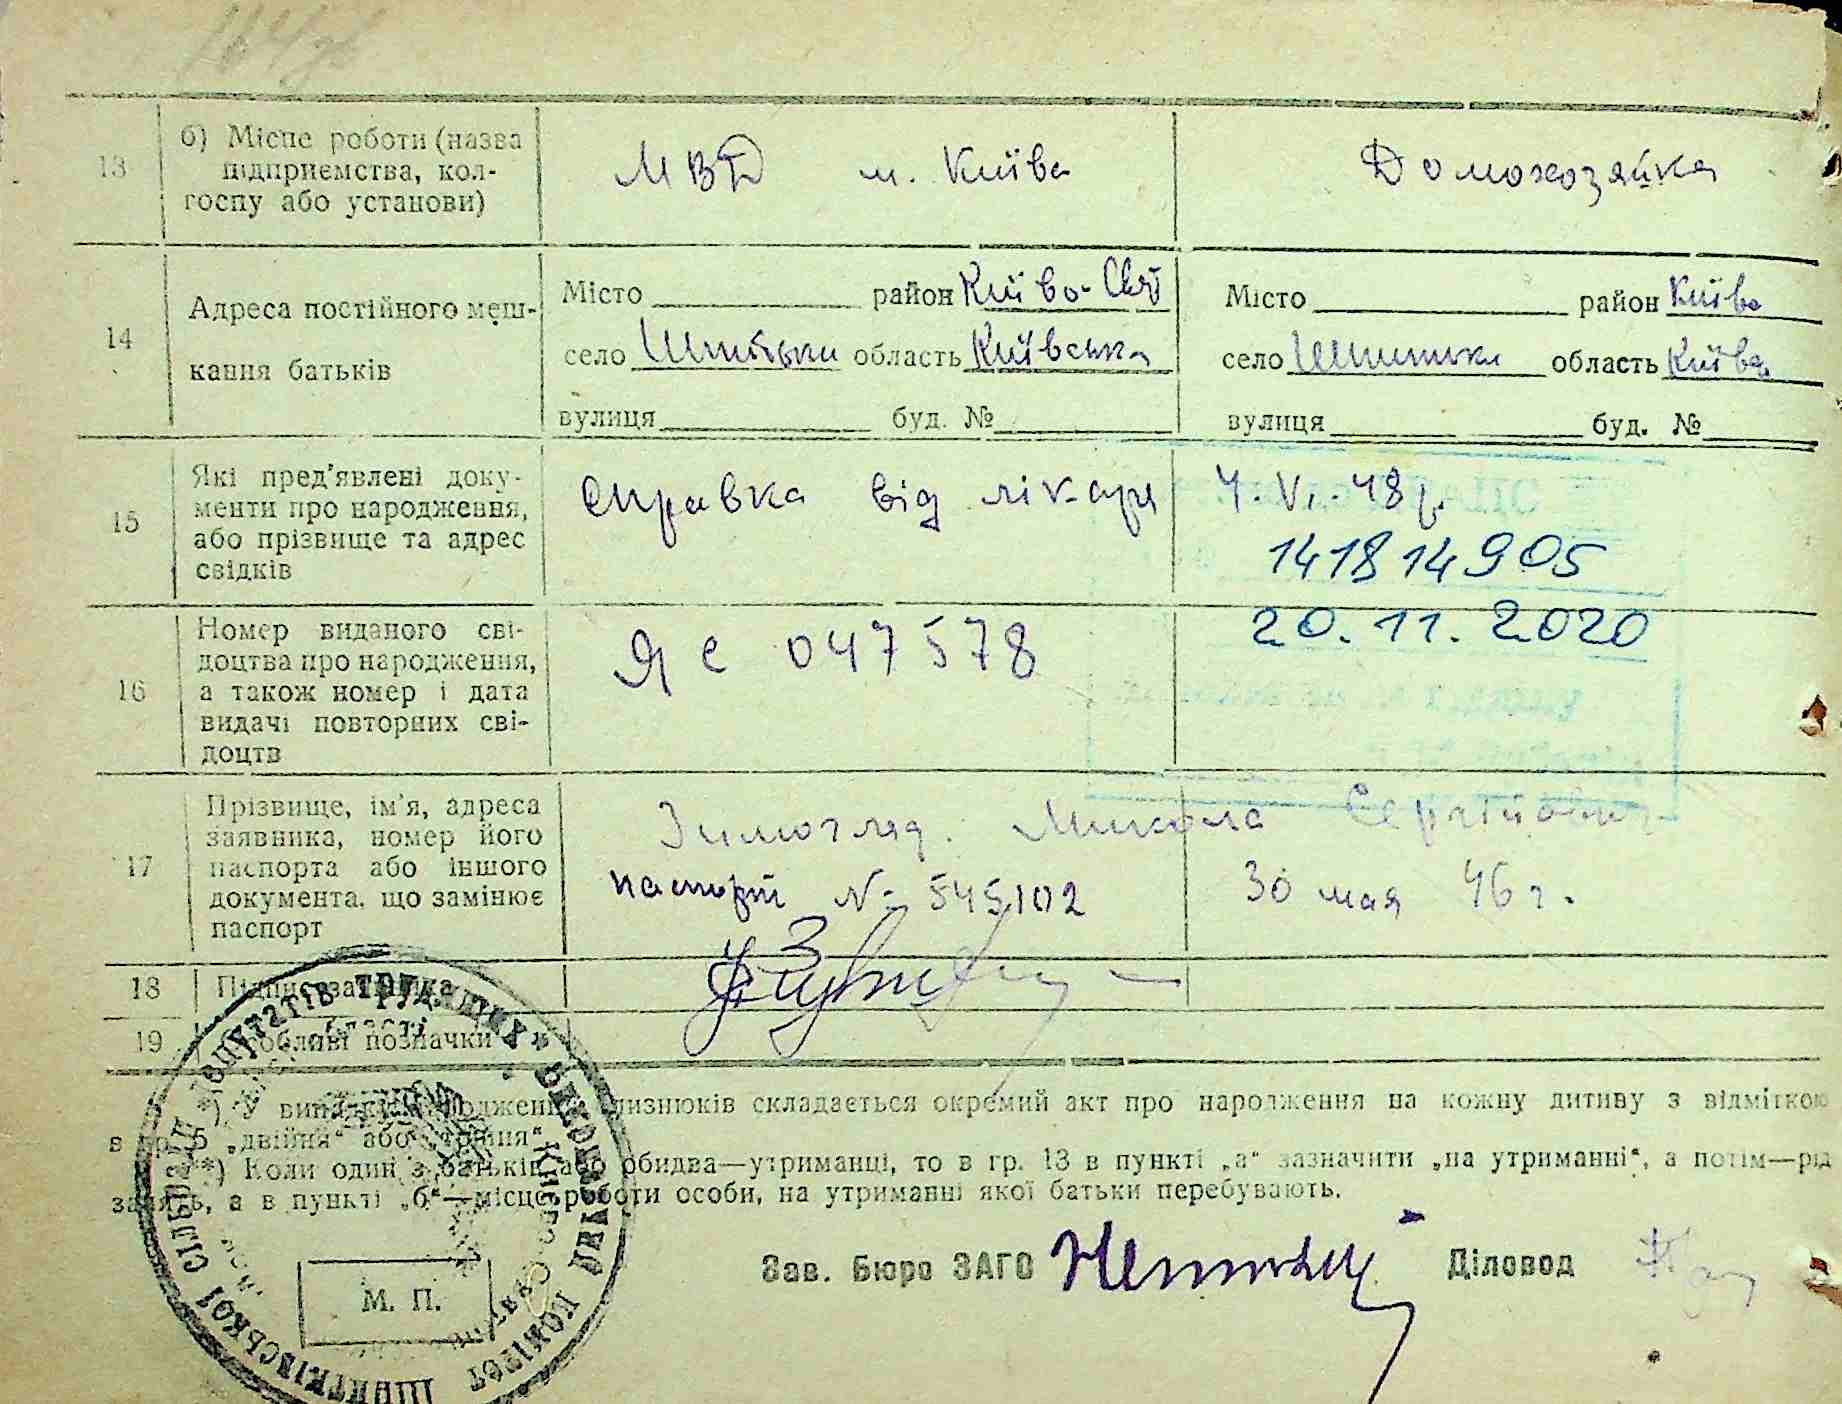 13
б) Місце роботи (назва
підприємства, кол-
госпу або установи)
МВД м. Київа
Домохозяйка
14
Адреса постійного меш-
кання батьків
Місто район Київо-Свят
село Шпитьки область Київська
вулиця буд. №
Місто район Київо
село Шпитьки область Київо
вулиця буд. №
15
Які пред'явлені доку-
менти про народження,
або прізвище та адрес
свідків
Справка від лікаря 4.VI.-48 р.
1418 14905
20.11.2020
16
Номер виданого сві-
доцтва про народження,
а також номер і дата
видачі повторних сві-
доцтв
ЯС 047578
17
Прізвище, ім'я, адреса
заявника, номер його
паспорта або іншого
документа, що замінює
паспорт
Микола Сергійович
паспорт № 545102 30 мая 46 г.
18 Підпис заявника
19 Особливі позначки
*) У випадку народження близнюків складається окремий акт про народження на кожну дитину з відміткою
в гр. 5 „двійня“ або „трійня“.
**) Коли один з батьків або обидва—утриманці, то в гр. 13 в пункті „а“ зазначити „на утриманні“, а потім—рід
занять, а в пункті „б“—місце роботи особи, на утриманні якої батьки перебувають.
Зав. Бюро ЗАГС Діловод
М. П.
ШПИТЬКІВСЬКОЇ СІЛЬРАДИ ДЕПУТАТІВ ТРУДЯЩИХ * ВИКОНАВЧИЙ КОМІТЕТ